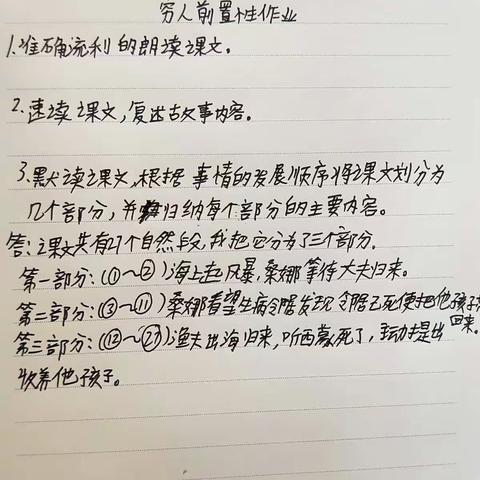 穷人前置性作业
1.准确流利的朗读课文。
2.速读课文,复述故事内容。
3.默读课文,根据事情的发展顺序将课文划分为
几个部分,并归纳每个部分的主要内容。
答:课文共有27个自然段,我把它分为了三个部分.
第一部分:(①~②)海上起风暴,桑娜等待丈夫归来。
第二部分:(③~⑪)桑娜看望生病邻居发现邻居已死便把他孩子抱
回来。
第三部分:(⑫~㉗)渔夫出海归来,听西蒙死了,主动提出
收养他孩子。